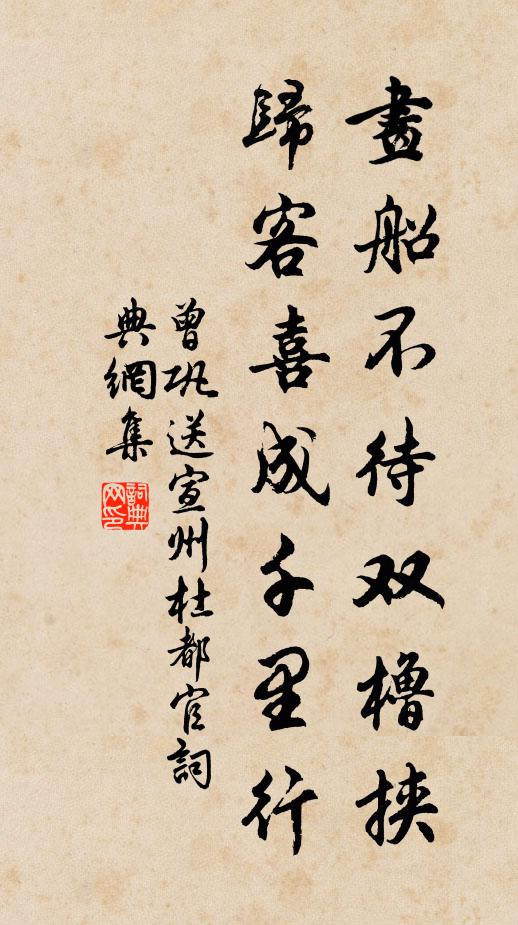 畫船不待双櫓挟
歸客喜成千里行
曾巩送宣州杜都官詞
典網集
詞典网印